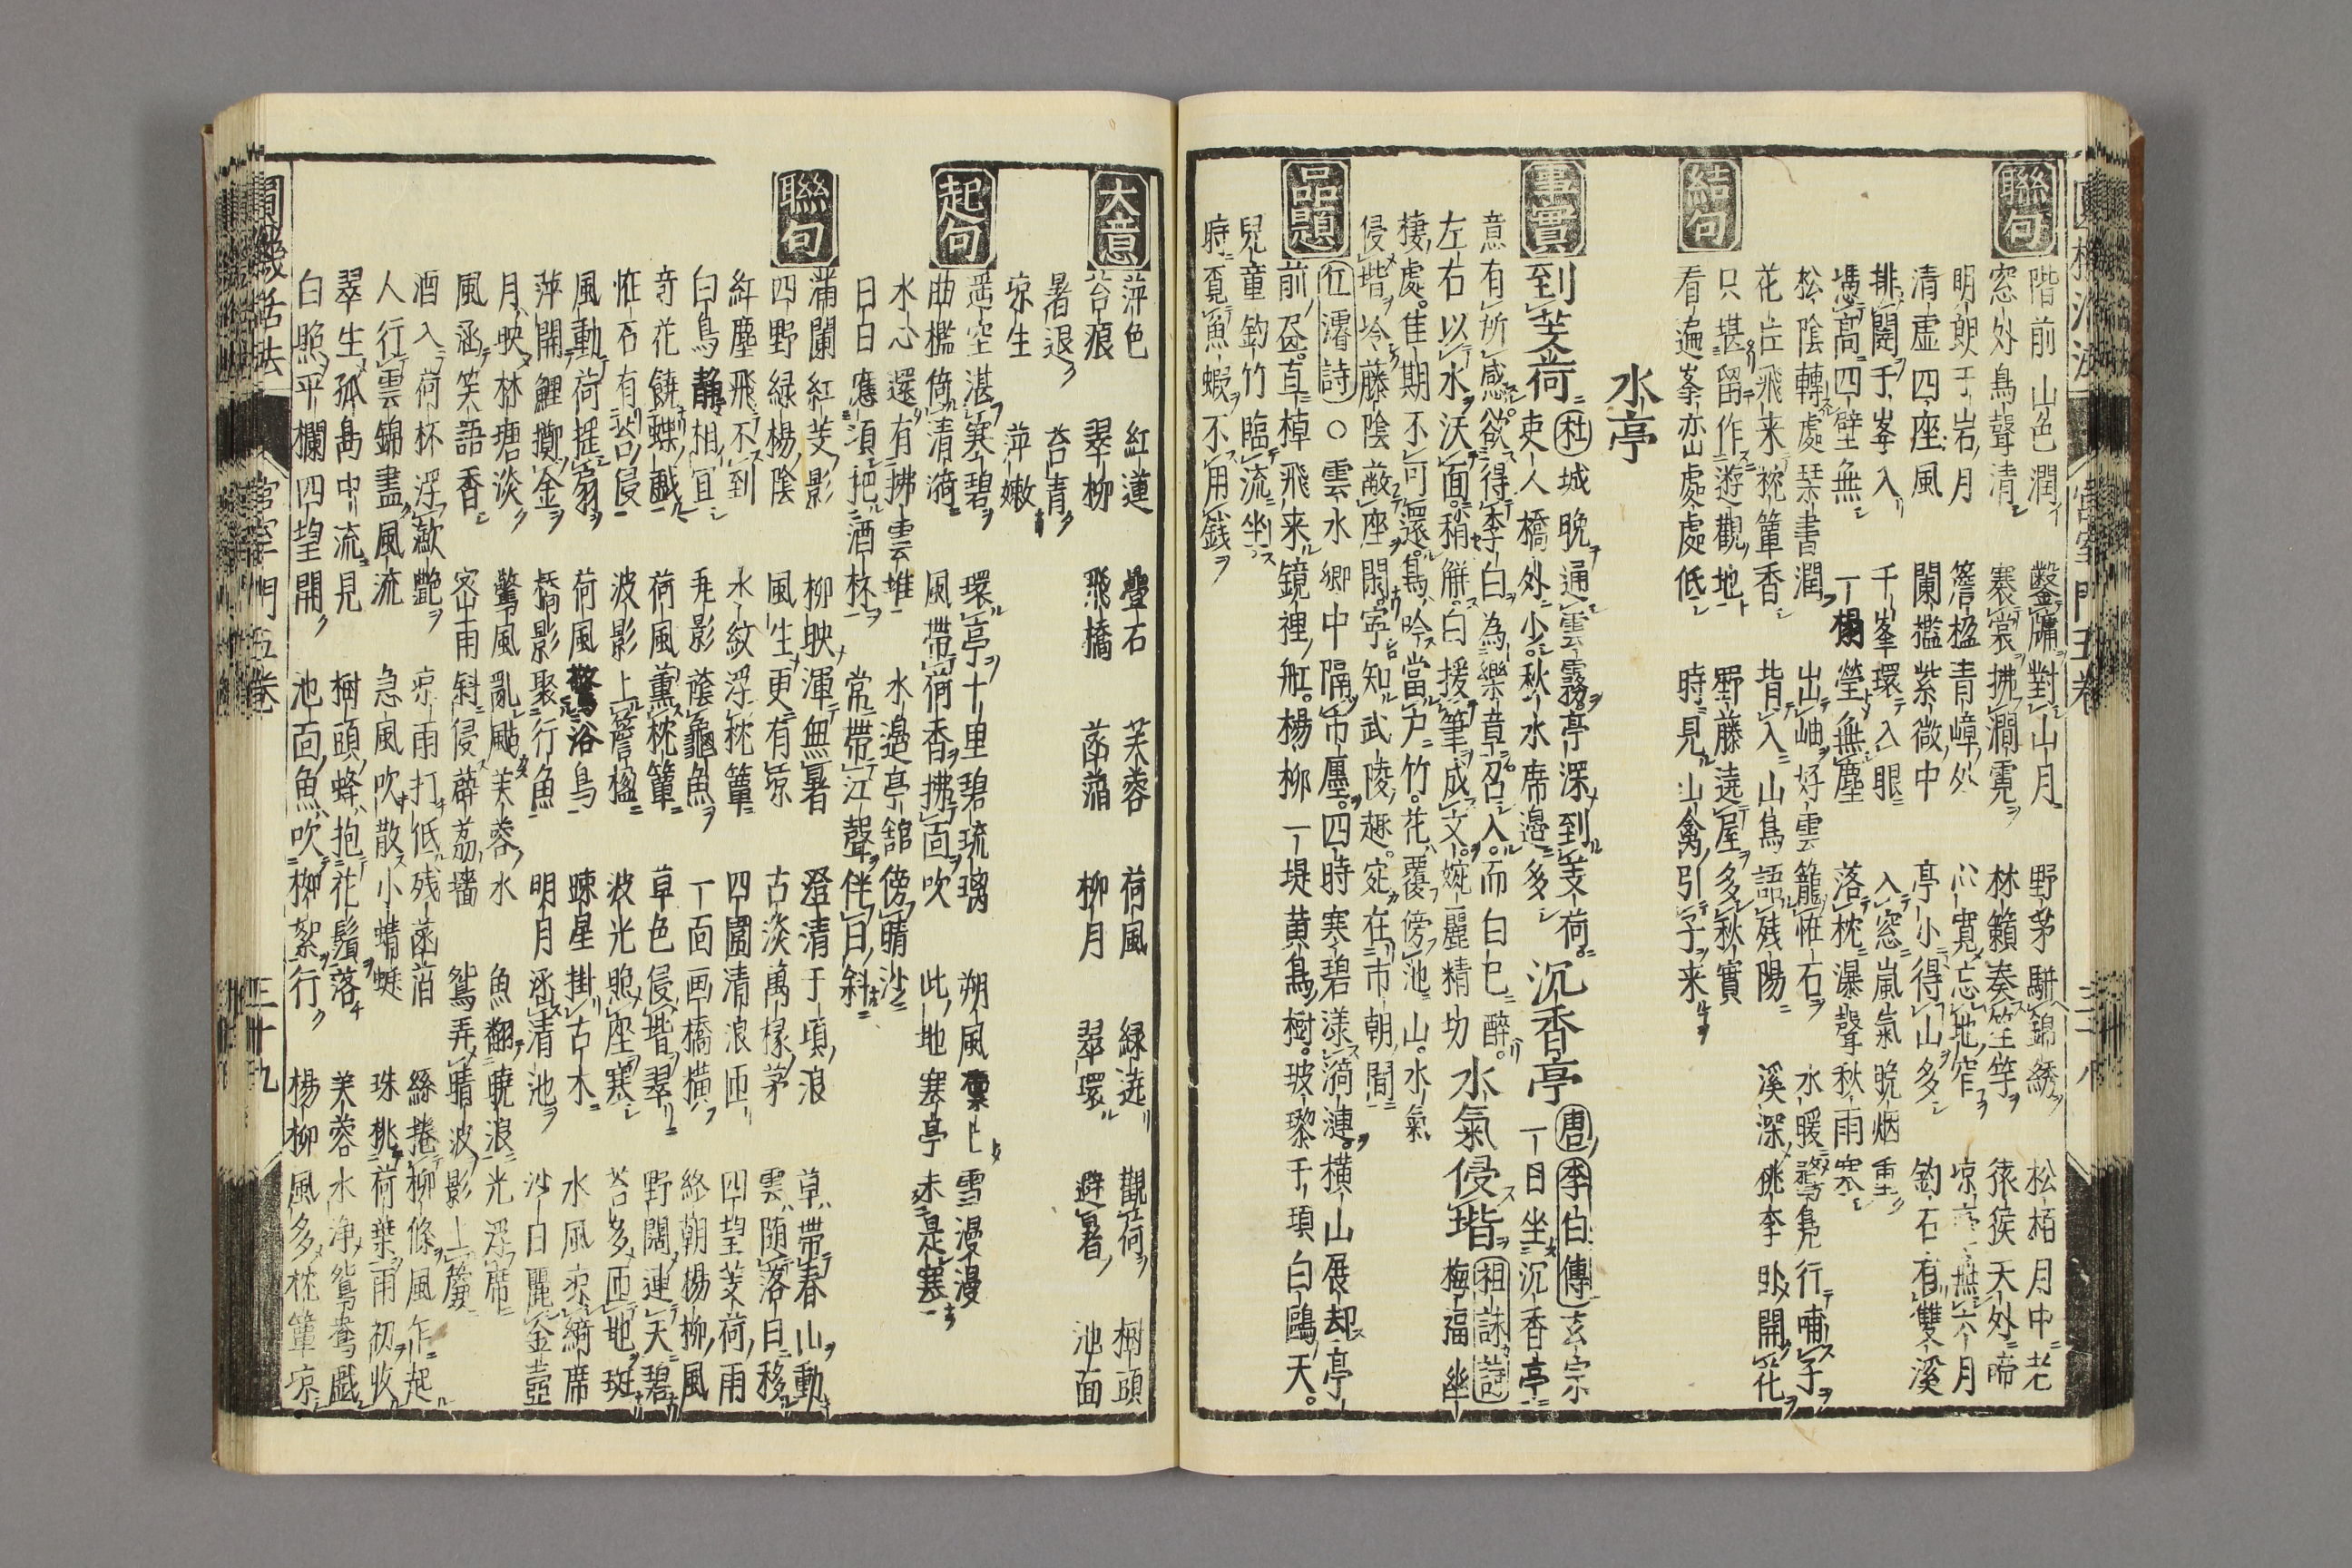 聯句
階前山色潤 鑿牖對山月 野茅駢錦綉 松栢月中老
窓外鳥聲清 褰裳拂澗霓 林籟奏笙竽 猿猴天外啼
明朗于岩月 簷楹青嶂外 心寬忘地窄 凉亭無六月
清虛四座風 闌檻紫微中 亭小得山多 釣石有雙溪
排闥于峯入 千峯環入眼 入窓嵐氣晚烟重
憑高四壁無 一榻瑩無塵 落枕瀑聲秋雨寒
松陰轉處琴書潤 出岫好雲籠怪石 水暖鳧行哺子
花片飛来枕簟香 背入山鳥語残陽 溪深桃李卧開花
結句
只堪留作遊觀地 野藤遶屋多秋實
看遍峯亦山處處低 時見山禽引子来
水亭
事實
到芰荷 杜 城晚通雲霧亭深到芰荷 沉香亭 唐李白傳 玄宗
吏人橋外小秋水席邊多 一日坐沉香亭
意有所感欲得李白為樂章召入而白已醉 水氣侵堦 祖詠詩
左右以水沃面稍解白援筆成文婉麗精切 梅福幽
棲處佳期不可還鳥吟當户竹花覆傍池山水氣
侵堦冷藤陰蔽座閑寧知武陵趣宛在市朝間
品題
伍濬詩 ○雲水鄉中隔市廛四時寒碧漾漪漣横山展却亭
前盃直棹飛来鏡裡舡楊柳一堤黄鳥樹玻瓈千頃白鷗天
兒童釣竹臨流坐
時覓魚蝦不用錢
大意
萍色 紅蓮 疊石 芙蓉 荷風 緑遶 觀荷 樹頭
苔痕 翠柳 飛橋 菡萏 柳月 翠環 避暑 池面
暑退 苔青
凉生 萍嫩
起句
遥空湛寒碧 環亭十里碧琉璃 朔風凛凛雪漫漫
曲檻倚清漪 風帶荷香拂面吹 此地寒亭未是寒
水心還有拂雲堆 水邊亭舘傍晴沙
日日應須把酒杯 常帶江聲伴日斜
聯句
滿闌紅芰影 柳映渾無暑 澄清于頃浪 草帶春山動
四野緑楊陰 風生更有凉 古淡萬椽茅 雲随落日移
紅塵飛不到 水紋浮枕簟 四圍清浪匝 四望芰荷雨
白鳥靜相宜 毳影蔭龜魚 一面画橋横 終朝楊柳風
奇花饒蝶戲 荷風薰枕簟 草色侵堦翠 野闊連天碧
怪石有苔侵 波影上簷楹 波光照座寒 苔多匝地斑
風動荷揺扇 荷風驚浴鳥 疎星掛古木 水風凉綃席
萍開鯉擲金 橋影聚行魚 明月涵清池 沙日麗金壺
月映林塘淡 驚風亂颭芙蓉水 魚翻曉浪光浮席
風涵笑語香 密雨斜侵薜荔墻 鴛弄晴波影上簾
酒入荷杯浮歛艶 凉雨打低残菡萏 絲捲柳條風乍起
人行雲錦畫風流 急風吹散小蜻蜓 珠挑荷葉雨初收
翠生孤島中流見 樹頭蜂抱花鬚落 芙蓉水净鴛鴦戯
白照平欄四望開 池面魚吹柳絮行 楊柳風多枕簟凉
圓機活法 宮室門五卷 三十九